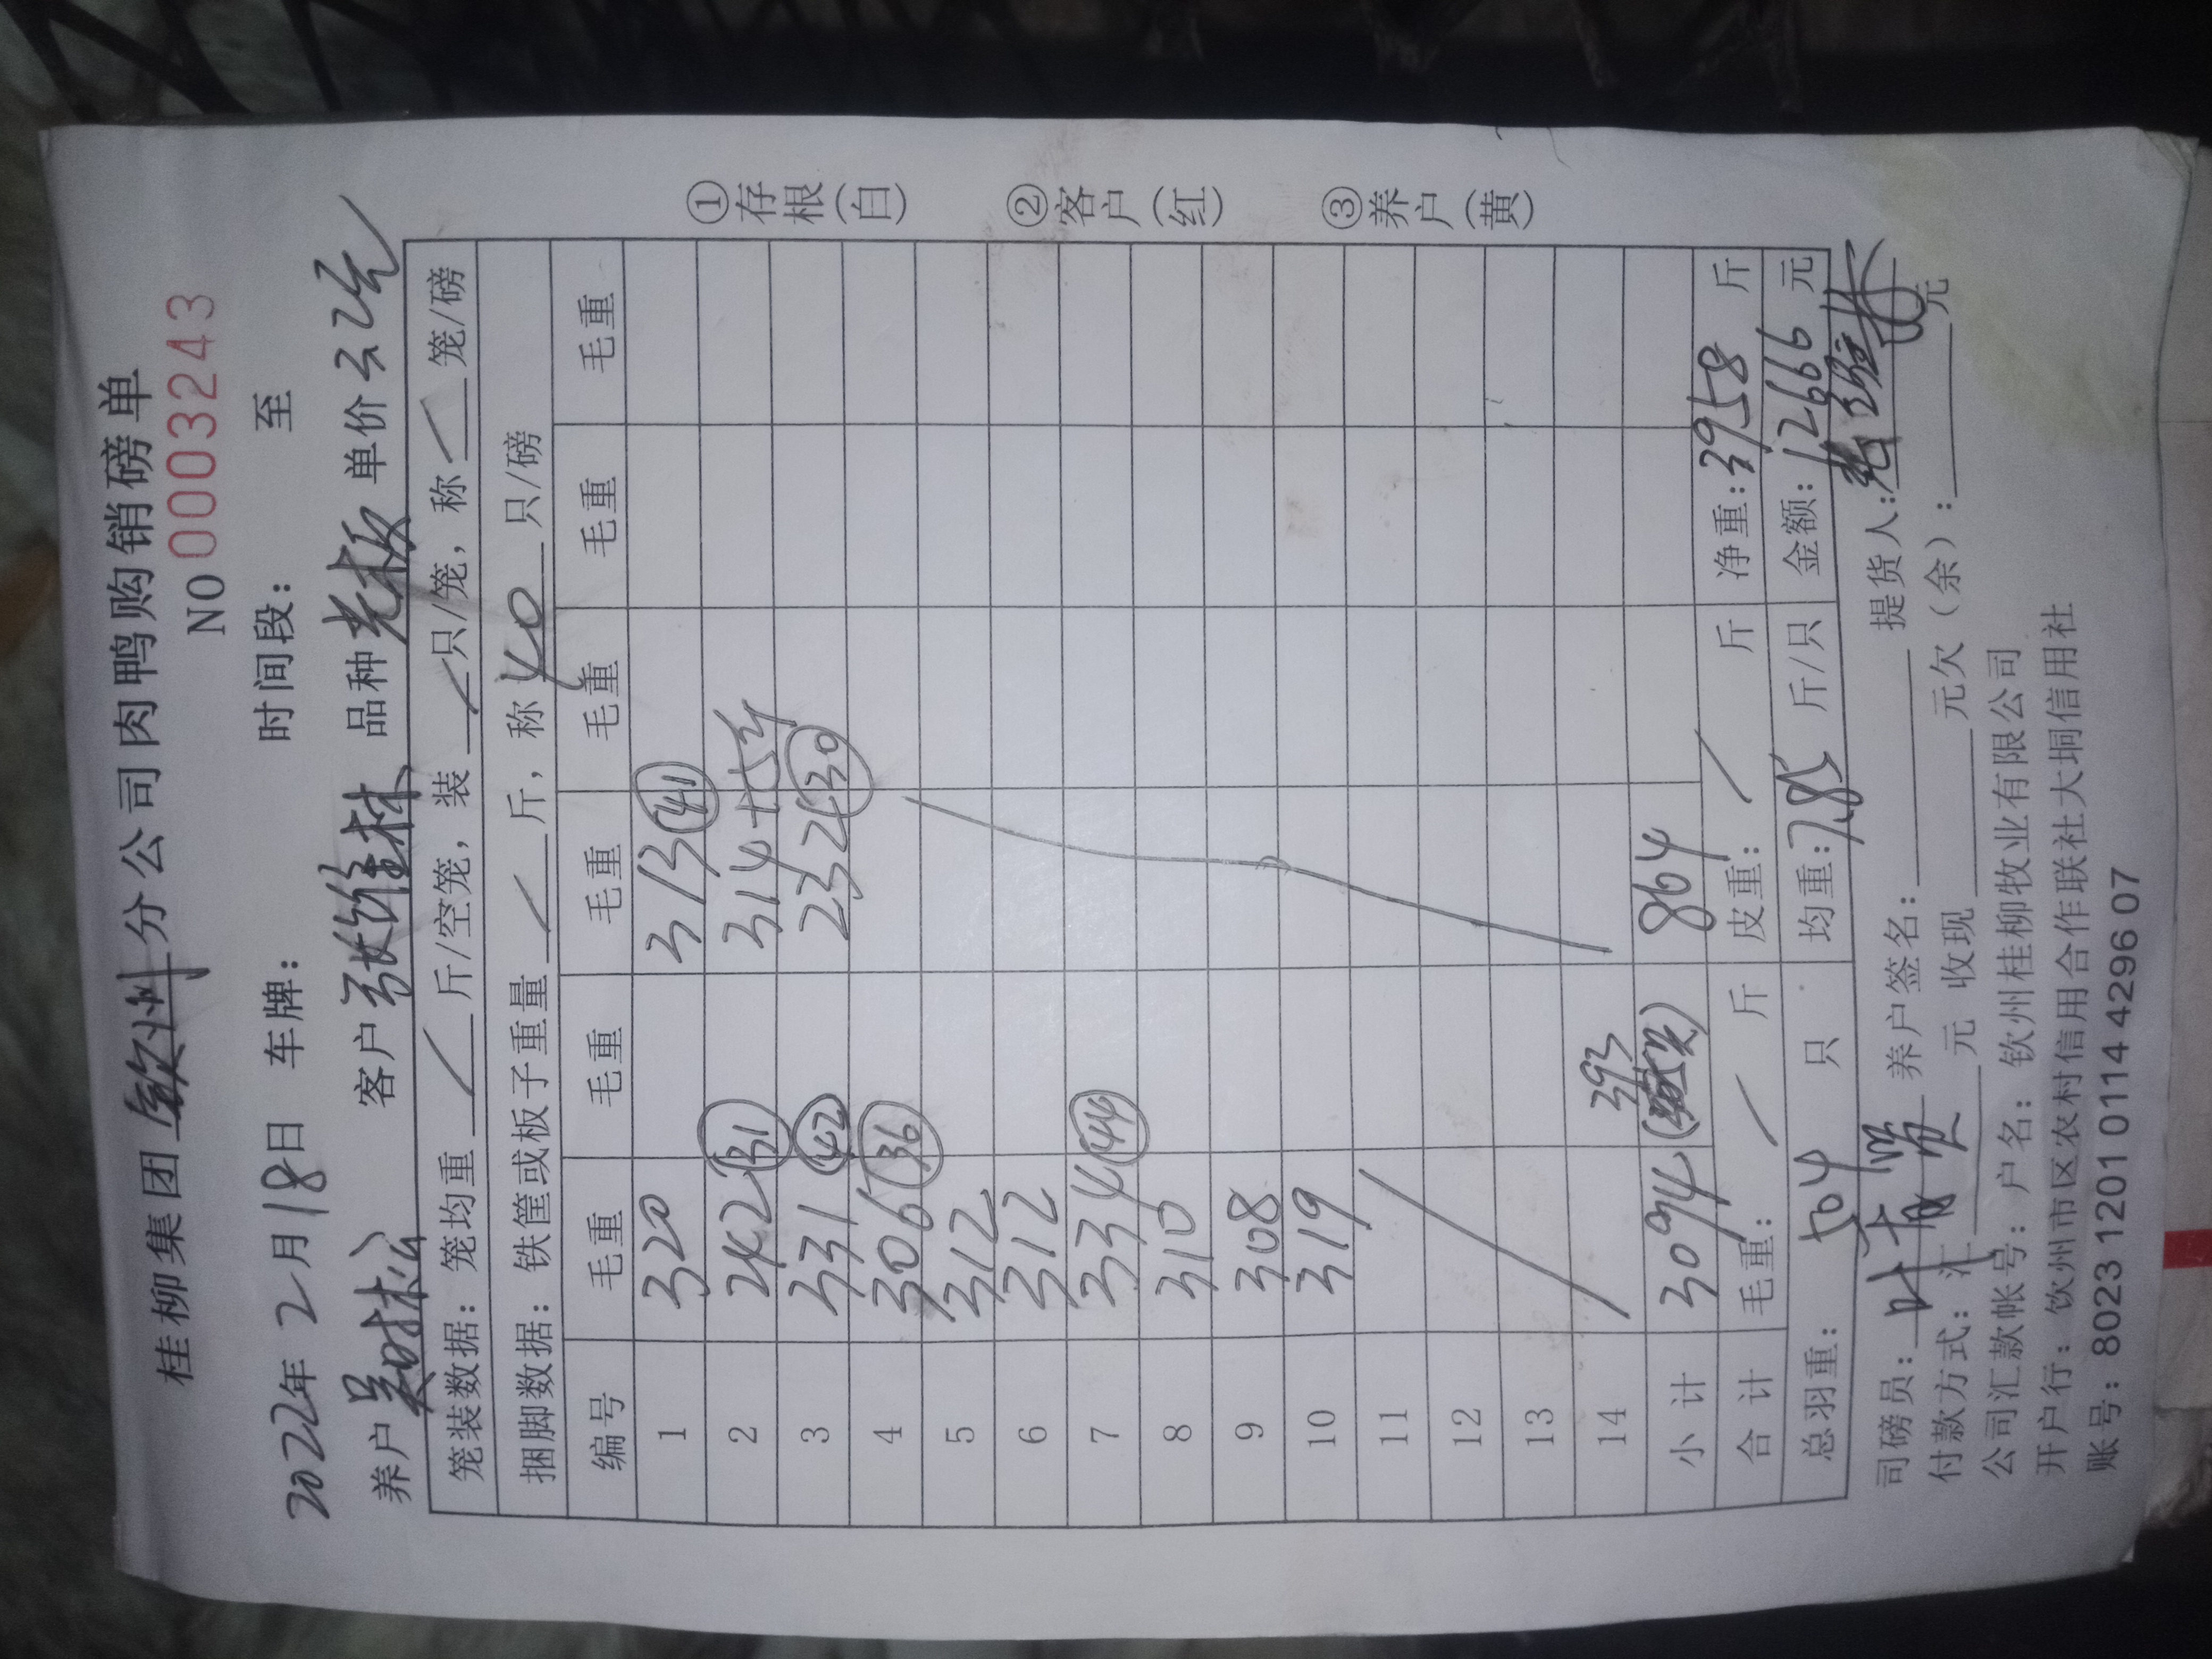 桂柳集团钦州分公司肉鸭购销磅单
NO 0003243
2022年2月18日 车牌： 时间段： 至
养户 吴时松 客户 张维林 品种 老板 单价 3.2元
笼装数据： 笼均重 / 斤/空笼，装 / 只/笼，称 / 笼/磅
捆脚数据： 铁筐或板子重量 / 斤，称 40 只/磅
编号 毛重 毛重 毛重 毛重 毛重 毛重
1 320 313 (41)
2 242 (31) 314
3 331 (42) 232 (30)
4 306 (36)
5 312
6 312
7 334 (44)
8 310
9 308
10 319
11
12
13
14 393
小计 3094 864
合计 毛重： / 斤 皮重： / 斤 净重：3958 斤
总羽重： 504 只 均重：7.85 斤/只 金额：12666 元
司磅员： 养户签名： 提货人：
付款方式：汇 元 收现 元欠（余）： 元
公司汇款帐号：户名： 钦州桂柳牧业有限公司
开户行：钦州市区农村信用合作联社大垌信用社
账号：8023 1201 0114 4296 07
①存根(白)
②客户(红)
③养户(黄)